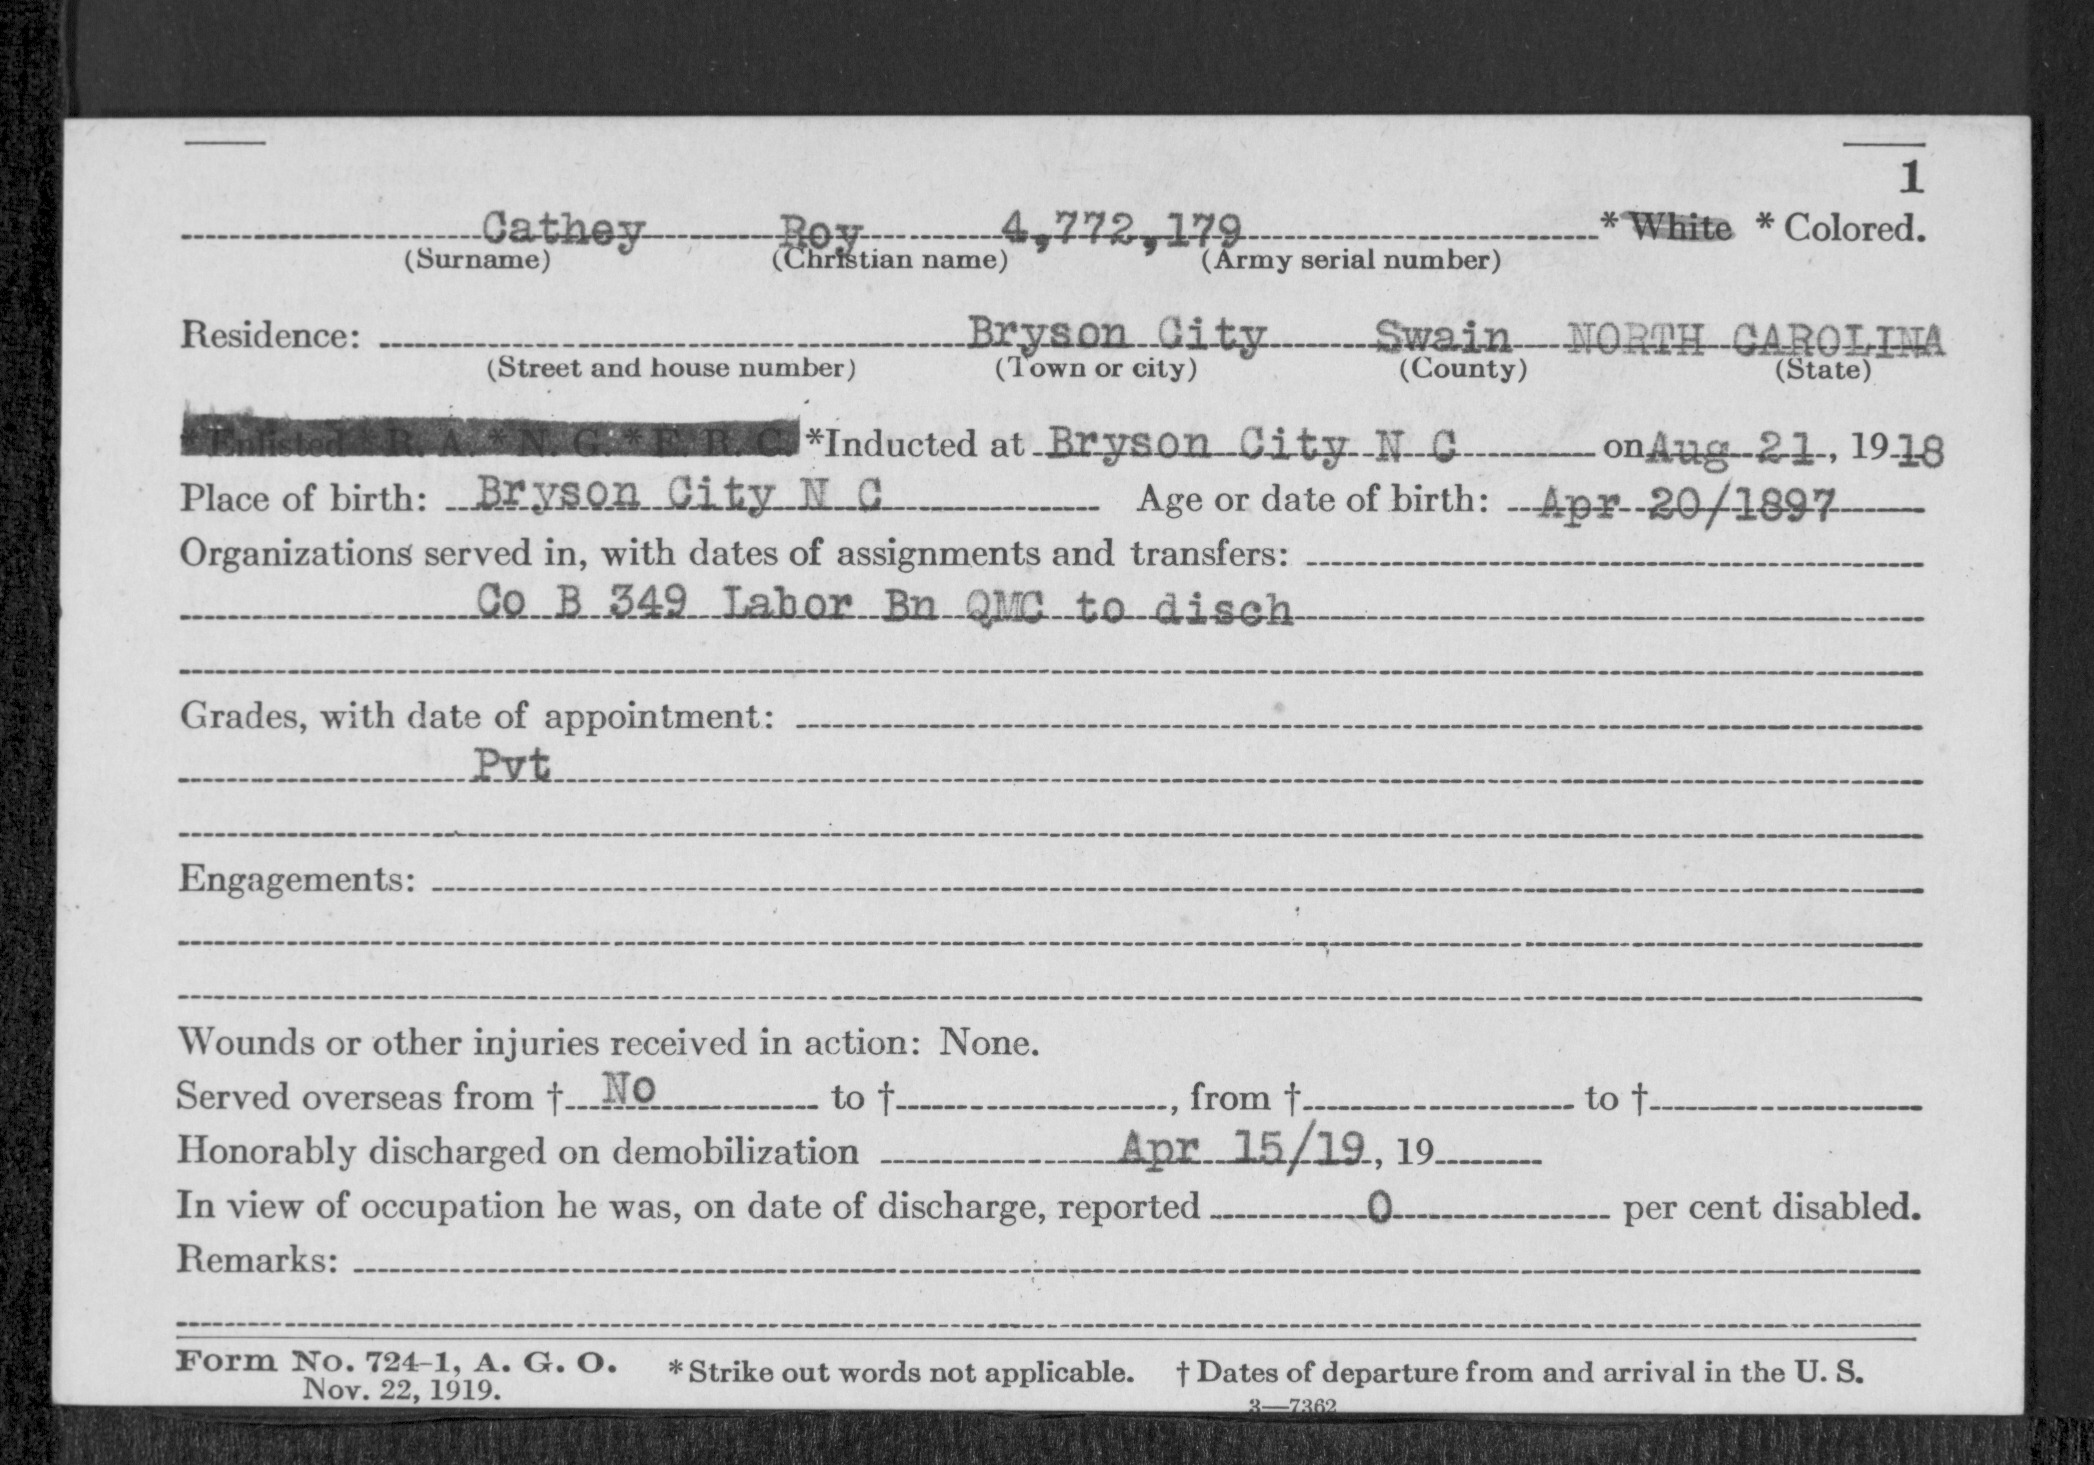 1
Cathey Roy 4,772,179 * White * Colored.
(Surname) (Christian name) (Army serial number)
Residence: Bryson City Swain NORTH CAROLINA
(Street and house number) (Town or city) (County) (State)
* Enlisted * R. A. * N. G. * E. R. C. *Inducted at Bryson City N C on Aug 21, 1918
Place of birth: Bryson City N C Age or date of birth: Apr 20/1897
Organizations served in, with dates of assignments and transfers:
Co B 349 Labor Bn QMC to disch
Grades, with date of appointment:
Pvt
Engagements:
Wounds or other injuries received in action: None.
Served overseas from † No to † , from † to †
Honorably discharged on demobilization Apr 15/19, 19
In view of occupation he was, on date of discharge, reported 0 per cent disabled.
Remarks:
Form No. 724-1, A. G. O. * Strike out words not applicable. † Dates of departure from and arrival in the U. S.
Nov. 22, 1919.
3—7362